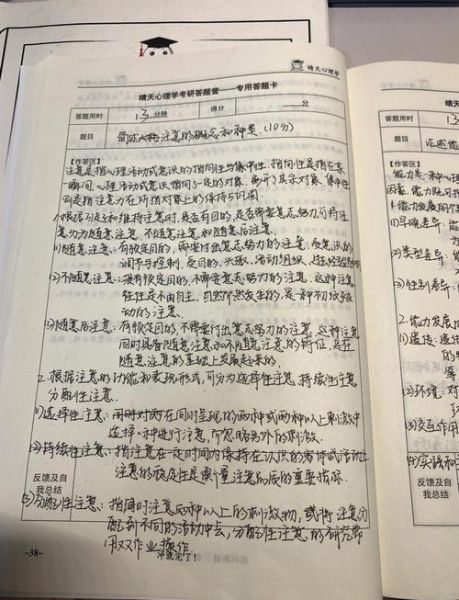 晴天心理学
晴天心理学考研答题营——专用答题卡
答题用时 13 分钟 得分 分
题目 简述注意的概念和种类.(10分)
【作答区】
注意是指心理活动或意识的指向性与集中性。指向性是指在某
一瞬间,心理活动或意识指向了一定的对象,离开了其余对象。集中性
则是指注意力在所指对象上的保持与
1.根据引起和维持注意时,是否有目的,是否需要意志努力可将注
意分为随意注意、不随意注意和随意后注意。
(1)随意注意:有预定目的,需要付出意志努力的注意,受意识的
调节与控制,
(2)不随意注意:没有预定目的,不需要意志努力的注意。这种注意
往往是不由自主,自然而然发生的,是一种初级
动的注意。
(3)随意后注意:有预定目的,不需要付出意志努力的注意,这种注意
同时具备随意注意和不随意注意的特征,是在
随意注意的基础上发展起来的。
2.根据注意的功能和表现形式,可分为选择性注意,持续性注意,
分配性注意。
(1)选择性注意:同时呈现的两种或两种以上刺激中
选择一种进行注意,而忽略另外的刺激。
(2)持续性注意:指注意在一定时间内保持在认识的客体或活动上
注意的稳定性是衡量注意品质的重要指标。
反馈及自
我总结
(3)分配性注意:指同时注意两种以上的刺激物,或将注意分
配到不同的活动中去,分配性注意的研究常
用双作业操作
-38-
答题用时 13
题目 论述能
【作答区】
能力是一种心理
因素,
(1)早晚差异:
(2)类型差异:
(3)性别差异:
2.能力发展
(1)遗传:
(2)环境:
(3)交互作用
(4)实践和
反馈及自
我总结